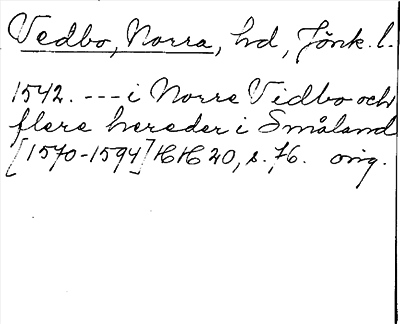 Vedbo, Norra, hd, Jönk. l.
1542. --- i Norre Vidbo och
flere hereder i Småland
[1570-1594] HH 20, s. 76. orig.